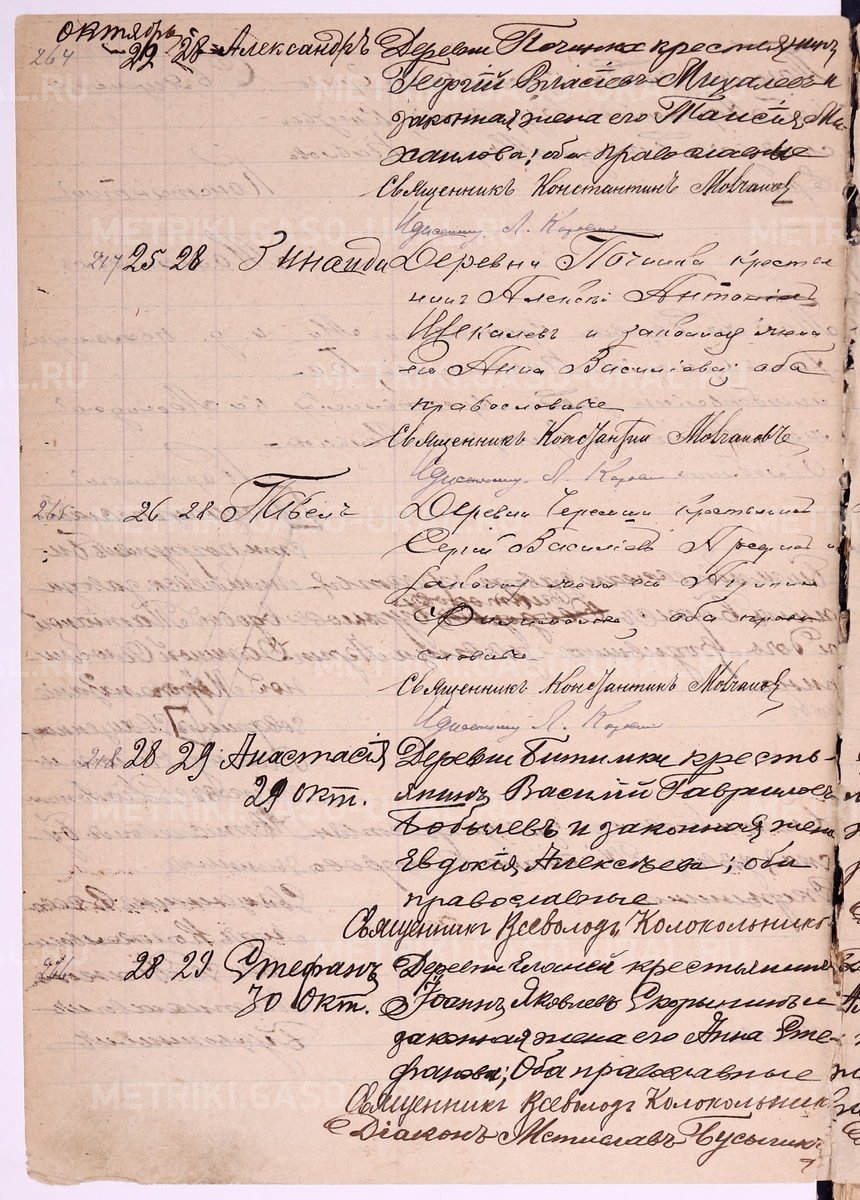 октябрь
264 22 28 Александръ Деревни Починка крестьянинъ
Георгій Власіевъ Михалевъ и
законная жена его Таисія Ми-
хаилова; оба православные
Священникъ Константинъ Мовчановъ
25 28 Зинаида Деревни Починка крестья
нинъ Алексѣй
и законная жена
его Анна Василіева; оба
православные
Священникъ Константинъ Мовчановъ
265 26 28 Павелъ Деревни крестьянинъ
Сергій Василіевъ и
законная жена его
оба право
славные
Священникъ Константинъ Мовчановъ
28 29 Анастасія Деревни Битимки кресть-
29 окт. янинъ Василій Гавриловъ
Бобылевъ и законная жена
Евдокія Алексѣева; оба
православные
Священникъ Всеволодъ Колокольников
266 28 29 Стефанъ Деревни крестьянинъ
30 окт. Іоаннъ Яковлевъ Скорынинъ и
законная жена его Анна Сте-
фанова; Оба православные
Священникъ Всеволодъ Колокольник
Діаконъ Мстиславъ
METRIKI.GASO-URAL.RU